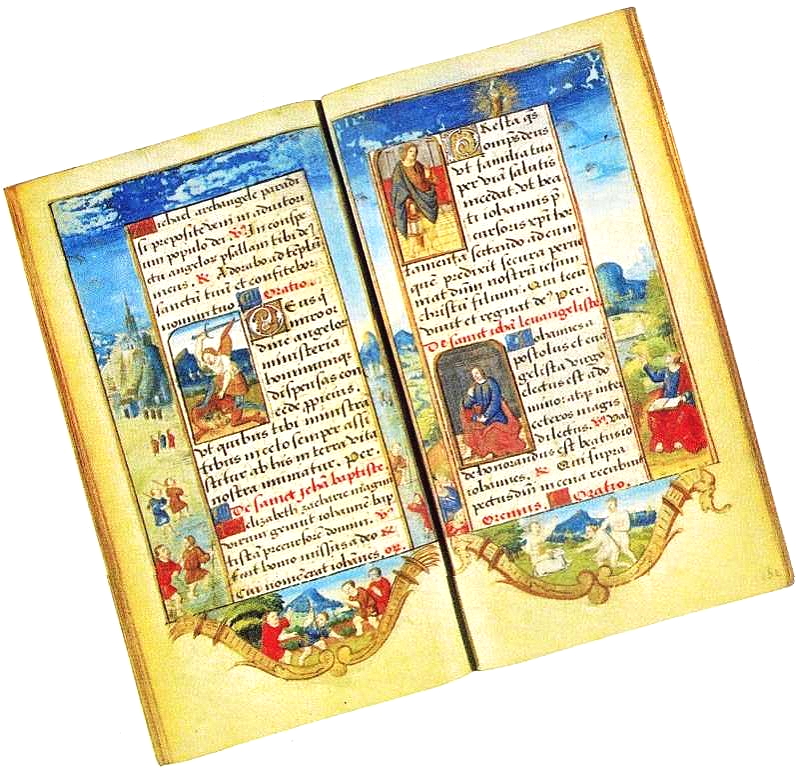 ichael archangele paradi
si preposite veni in adiutori
um populo dei. ℣. In conspe
ctu angelorū psallam tibi de⁹
meus. ℟. Adorabo ad tēplū
sanctū tuū et confitebor
nomini tuo. Oratio.
Deus q̇
miro or
dine angelorū
ministeria
hominumqȝ
dispensas con
cede ꝓpicius.
vt quibus tibi ministran
tibus in celo semper assi
stitur ab his in terra vita
nostra muniatur. Per.
De sanct johā baptiste
elizabeth zacharie magnum
virum genuit iohannē bap
tistā precursorē domini. ℣.
Fuit homo missus a deo ℟.
Cui nomē erat iohānes. or.
resta q̄s
omp̄s deus
vt familia tua
per viā salutis
incedat vt bea
ti iohannis p̄
cursoris xp̄i hor
tamenta sectando ad eum
quē predixit secura perue
niat dn̄m nostrū iesum
christū filium. Qui tecū
vivit et regnat de⁹. Per.
De sanct iohā leuangeliste
Johannes a
postolus et euā
gelista virgo
electus est a do
mino: atqȝ inter
ceteros magis
dilectus. ℣. Val
de honorandus est beatus io
hānes. ℟. Qui supra
pectus dn̄i in cena recubuit
Oremus. Oratio.